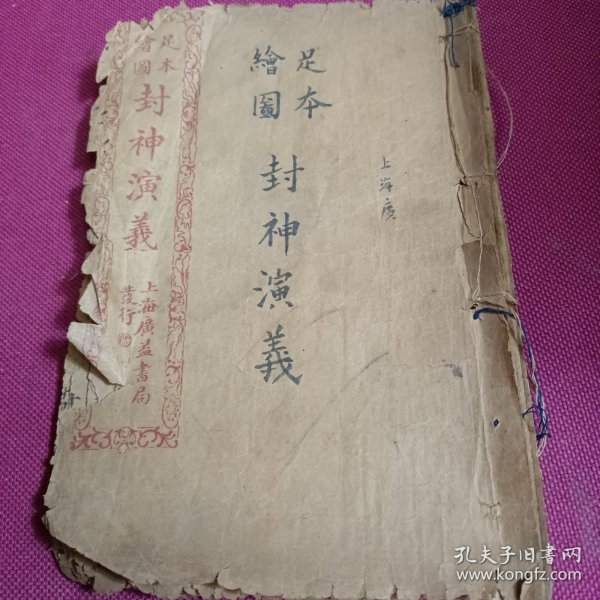 足本
繪圖
封神演義
上海廣益書局
發行
足本
繪圖
封神演義
上海廣
孔夫子旧书网
www.kongfz.com